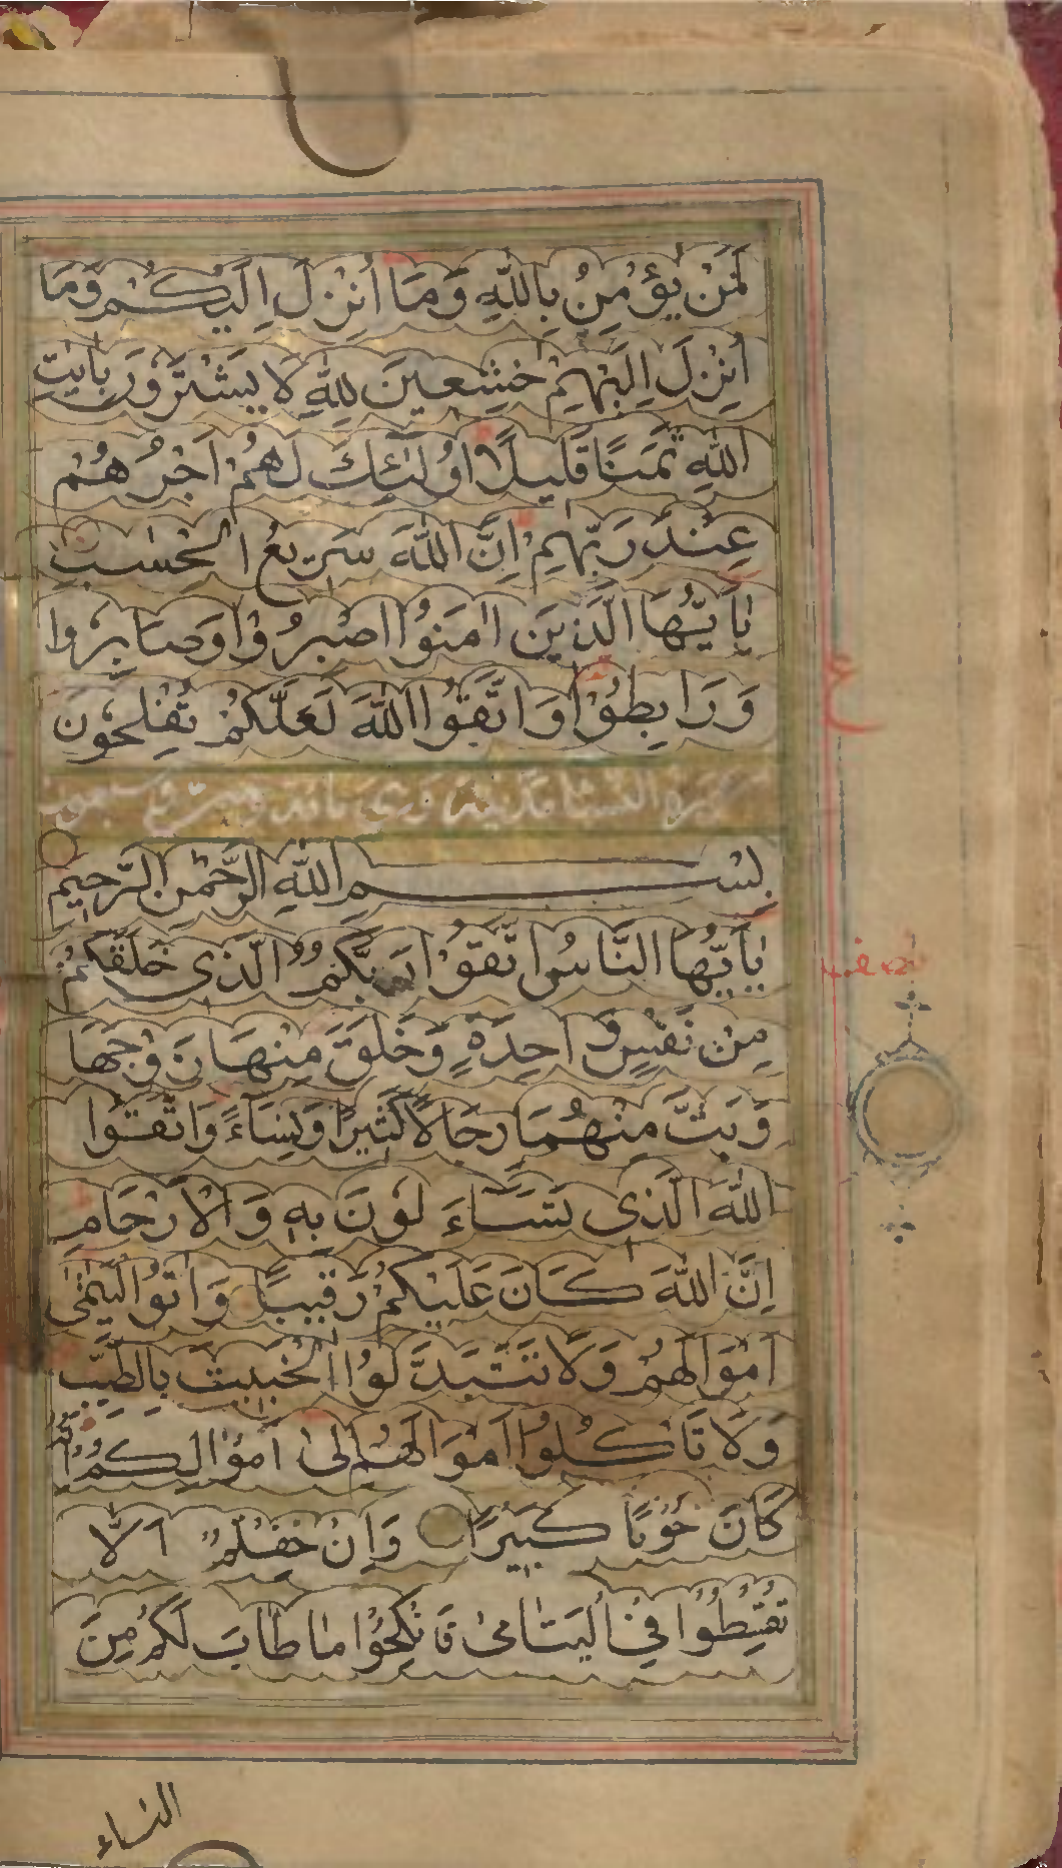 لَمَنْ يُؤْمِنُ بِاللّٰهِ وَمَا اُنْزِلَ اِلَيْكُمْ وَمَا
اُنْزِلَ اِلَيْهِمْ خٰشِعِينَ لِلّٰهِ لَا يَشْتَرُونَ بِاٰيٰتِ
اللّٰهِ ثَمَنًا قَلِيلًا اُولٰٓئِكَ لَهُمْ اَجْرُهُمْ
عِنْدَ رَبِّهِمْ اِنَّ اللّٰهَ سَرِيعُ الْحِسٰبِ
يٰٓاَيُّهَا الَّذِينَ اٰمَنُوا اصْبِرُوْا وَصَابِرُوا
وَرَابِطُوْا وَاتَّقُوا اللّٰهَ لَعَلَّكُمْ تُفْلِحُونَ
سورة النساء مدنية وهى مائة وسبعون
بِسْمِ اللّٰهِ الرَّحْمٰنِ الرَّحِيمِ
يٰٓاَيُّهَا النَّاسُ اتَّقُوْا رَبَّكُمُ الَّذِى خَلَقَكُمْ
مِنْ نَفْسٍ وَاحِدَةٍ وَخَلَقَ مِنْهَا زَوْجَهَا
وَبَثَّ مِنْهُمَا رِجَالًا كَثِيرًا وَنِسَاءً وَاتَّقُوا
اللّٰهَ الَّذِى تَسَّآءَلُونَ بِهِ وَالْاَرْحَامَ
اِنَّ اللّٰهَ كَانَ عَلَيْكُمْ رَقِيبًا وَاٰتُوا الْيَتٰمٰى
اَمْوَالَهُمْ وَلَا تَتَبَدَّلُوُا الْخَبِيثَ بِالطَّيِّبِ
وَلَا تَاْكُلُوا اَمْوَالَهُمْ اِلٰى اَمْوَالِكُمْ اِنَّهُ
كَانَ حُوْبًا كَبِيْرًا وَاِنْ خِفْتُمْ اَلَّا
تُقْسِطُوْا فِى الْيَتَامٰى فَانْكِحُوْا مَا طَابَ لَكُمْ مِنَ
ع
نصف
النساء